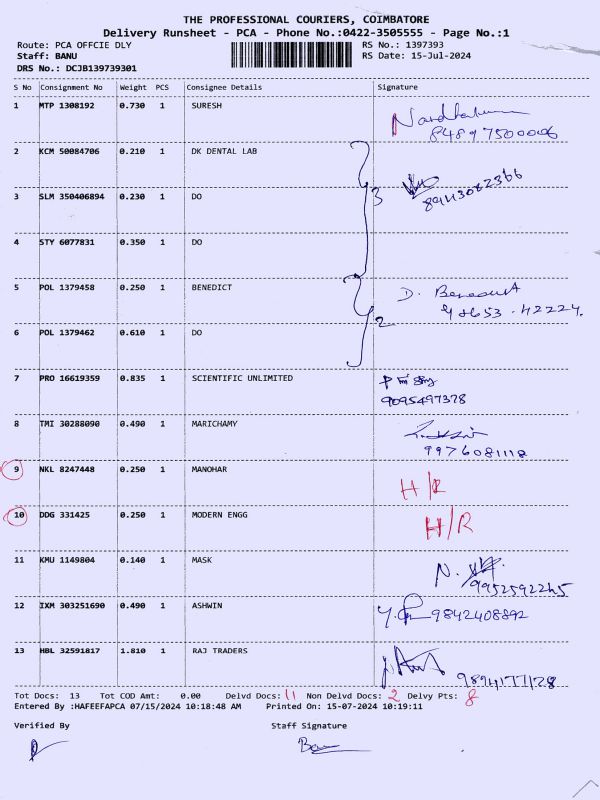 THE PROFESSIONAL COURIERS, COIMBATORE
Delivery Runsheet - PCA - Phone No.:0422-3505555 - Page No.:1
Route: PCA OFFCIE DLY RS No.: 1397393
Staff: BANU RS Date: 15-Jul-2024
DRS No.: DCJB139739301
S No Consignment No Weight PCS Consignee Details Signature
1 MTP 1308192 0.730 1 SURESH
84897500006
2 KCM 50084706 0.210 1 DK DENTAL LAB
3 SLM 350406894 0.230 1 DO 3 8943082366
4 STY 6077831 0.350 1 DO
5 POL 1379458 0.250 1 BENEDICT D. Benedict
2 98653.42224.
6 POL 1379462 0.610 1 DO
7 PRO 16619359 0.835 1 SCIENTIFIC UNLIMITED
9095497378
8 TMI 30288090 0.490 1 MARICHAMY
9976081118
9 NKL 8247448 0.250 1 MANOHAR H/R
10 DDG 331425 0.250 1 MODERN ENGG H/R
11 KMU 1149804 0.140 1 MASK N.
9952592245
12 IXM 303251690 0.490 1 ASHWIN 9842408892
13 HBL 32591817 1.810 1 RAJ TRADERS
9894177128
Tot Docs: 13 Tot COD Amt: 0.00 Delvd Docs: 11 Non Delvd Docs: 2 Delvy Pts: 8
Entered By :HAFEEFAPCA 07/15/2024 10:18:48 AM Printed On: 15-07-2024 10:19:11
Verified By Staff Signature